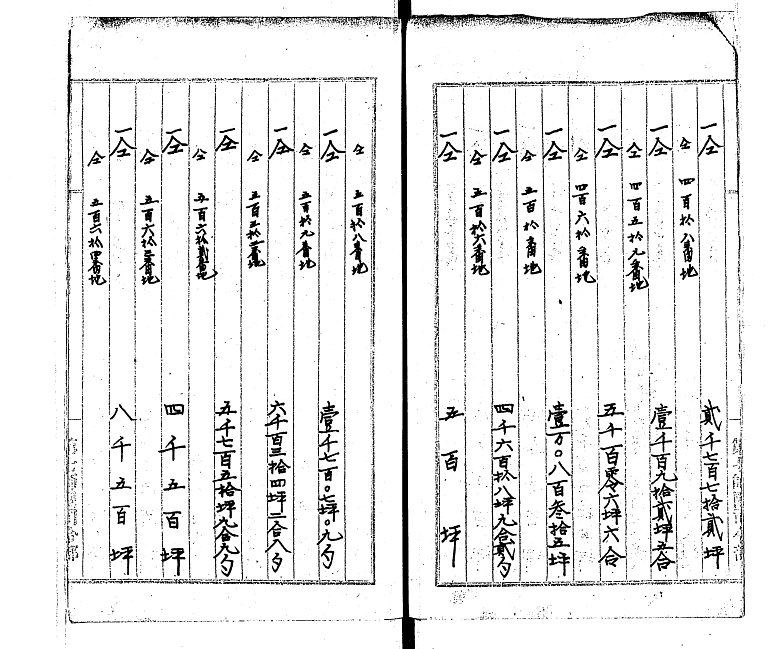 一仝
貳千七百七拾貳坪
仝 四百拾八番地
一仝
壹千百九拾貳坪五合
仝 四百五拾九番地
一仝
五千百零六坪六合
仝 四百六拾番地
一仝
壹万〇八百叁拾五坪
仝 五百拾番地
一仝
四千六百拾八坪九合貳勺
仝 五百拾六番地
一仝
五百坪
仝 五百拾八番地
一仝
壹千七百〇七坪〇九勺
仝 五百拾九番地
一仝
六千百三拾四坪二合八勺
仝 五百五拾一番地
一仝
五千七百五拾坪九合九勺
仝 五百六拾貳番地
一仝
四千五百坪
仝 五百六拾三番地
一仝
八千五百坪
仝 五百六拾四番地